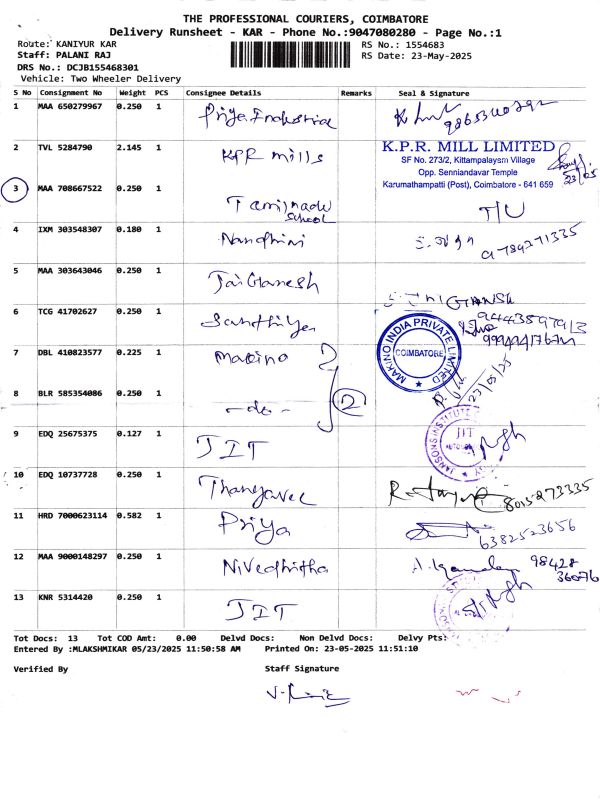 THE PROFESSIONAL COURIERS, COIMBATORE
Delivery Runsheet - KAR - Phone No.:9047080280 - Page No.:1
Route: KANIYUR KAR
RS No.: 1554683
Staff: PALANI RAJ
RS Date: 23-May-2025
DRS No.: DCJB155468301
Vehicle: Two Wheeler Delivery
S No Consignment No Weight PCS Consignee Details Remarks Seal & Signature
1 MAA 650279967 0.250 1 Priya Industrial
2 TVL 5284790 2.145 1 KPR mills
K.P.R. MILL LIMITED
SF No. 273/2, Kittampalaysm Village
Opp. Senniandavar Temple
Karumathampatti (Post), Coimbatore - 641 659
23/05
3 MAA 708667522 0.250 1 Tamilnadu School T/U
4 IXM 303548307 0.180 1 Nandhini
5 MAA 303643046 0.250 1 Jai Ganesh
6 TCG 41702627 0.250 1 Sandhiya
7 DBL 410823577 0.225 1 Makino
MAKINO INDIA PRIVATE LIMITED
COIMBATORE
2
8 BLR 585354086 0.250 1 -do- 23/05/25
9 EDQ 25675375 0.127 1 JIT
JANSONS INSTITUTE
JIT
10 EDQ 10737728 0.250 1 Thangavel 8015273335
11 HRD 7000623114 0.582 1 Priya 6382523656
12 MAA 9000148297 0.250 1 Nivedhitha 98428 36076
13 KNR 5314420 0.250 1 JIT
Tot Docs: 13 Tot COD Amt: 0.00 Delvd Docs: Non Delvd Docs: Delvy Pts:
Entered By :MLAKSHMIKAR 05/23/2025 11:50:58 AM Printed On: 23-05-2025 11:51:10
Verified By Staff Signature